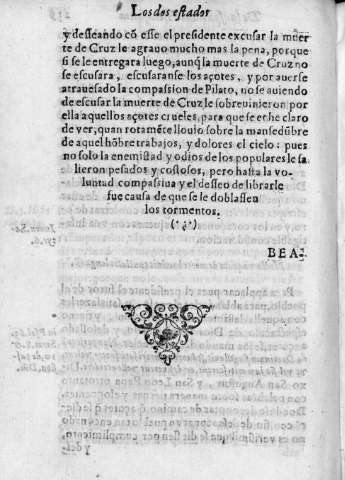 Los dos estados
y desseando cõ esse el presidente excusar la muer
te de Cruz le agrauo mucho mas la pena, porque
si se le entregara luego, aunq̃ la muerte de Cruz no
se escusara, escusaranse los açotes, y por auerse
atrauesado la compassion de Pilato, no se auiendo
de escusar la muerte de Cruz, le sobreuinieron por
ella aquellos açotes crueles, para que se eche claro
de ver, quan rotamẽte llouio sobre la mansedũbre
de aquel hõbre trabajos, y dolores el cielo: pues
no solo la enemistad y odios de los populares le sa
lieron pesados y costosos, pero hasta la vo-
luntad compassiua y el desseo de librarle
fue causa de que se le doblassen
los tormentos.
(·.·)
BEA-